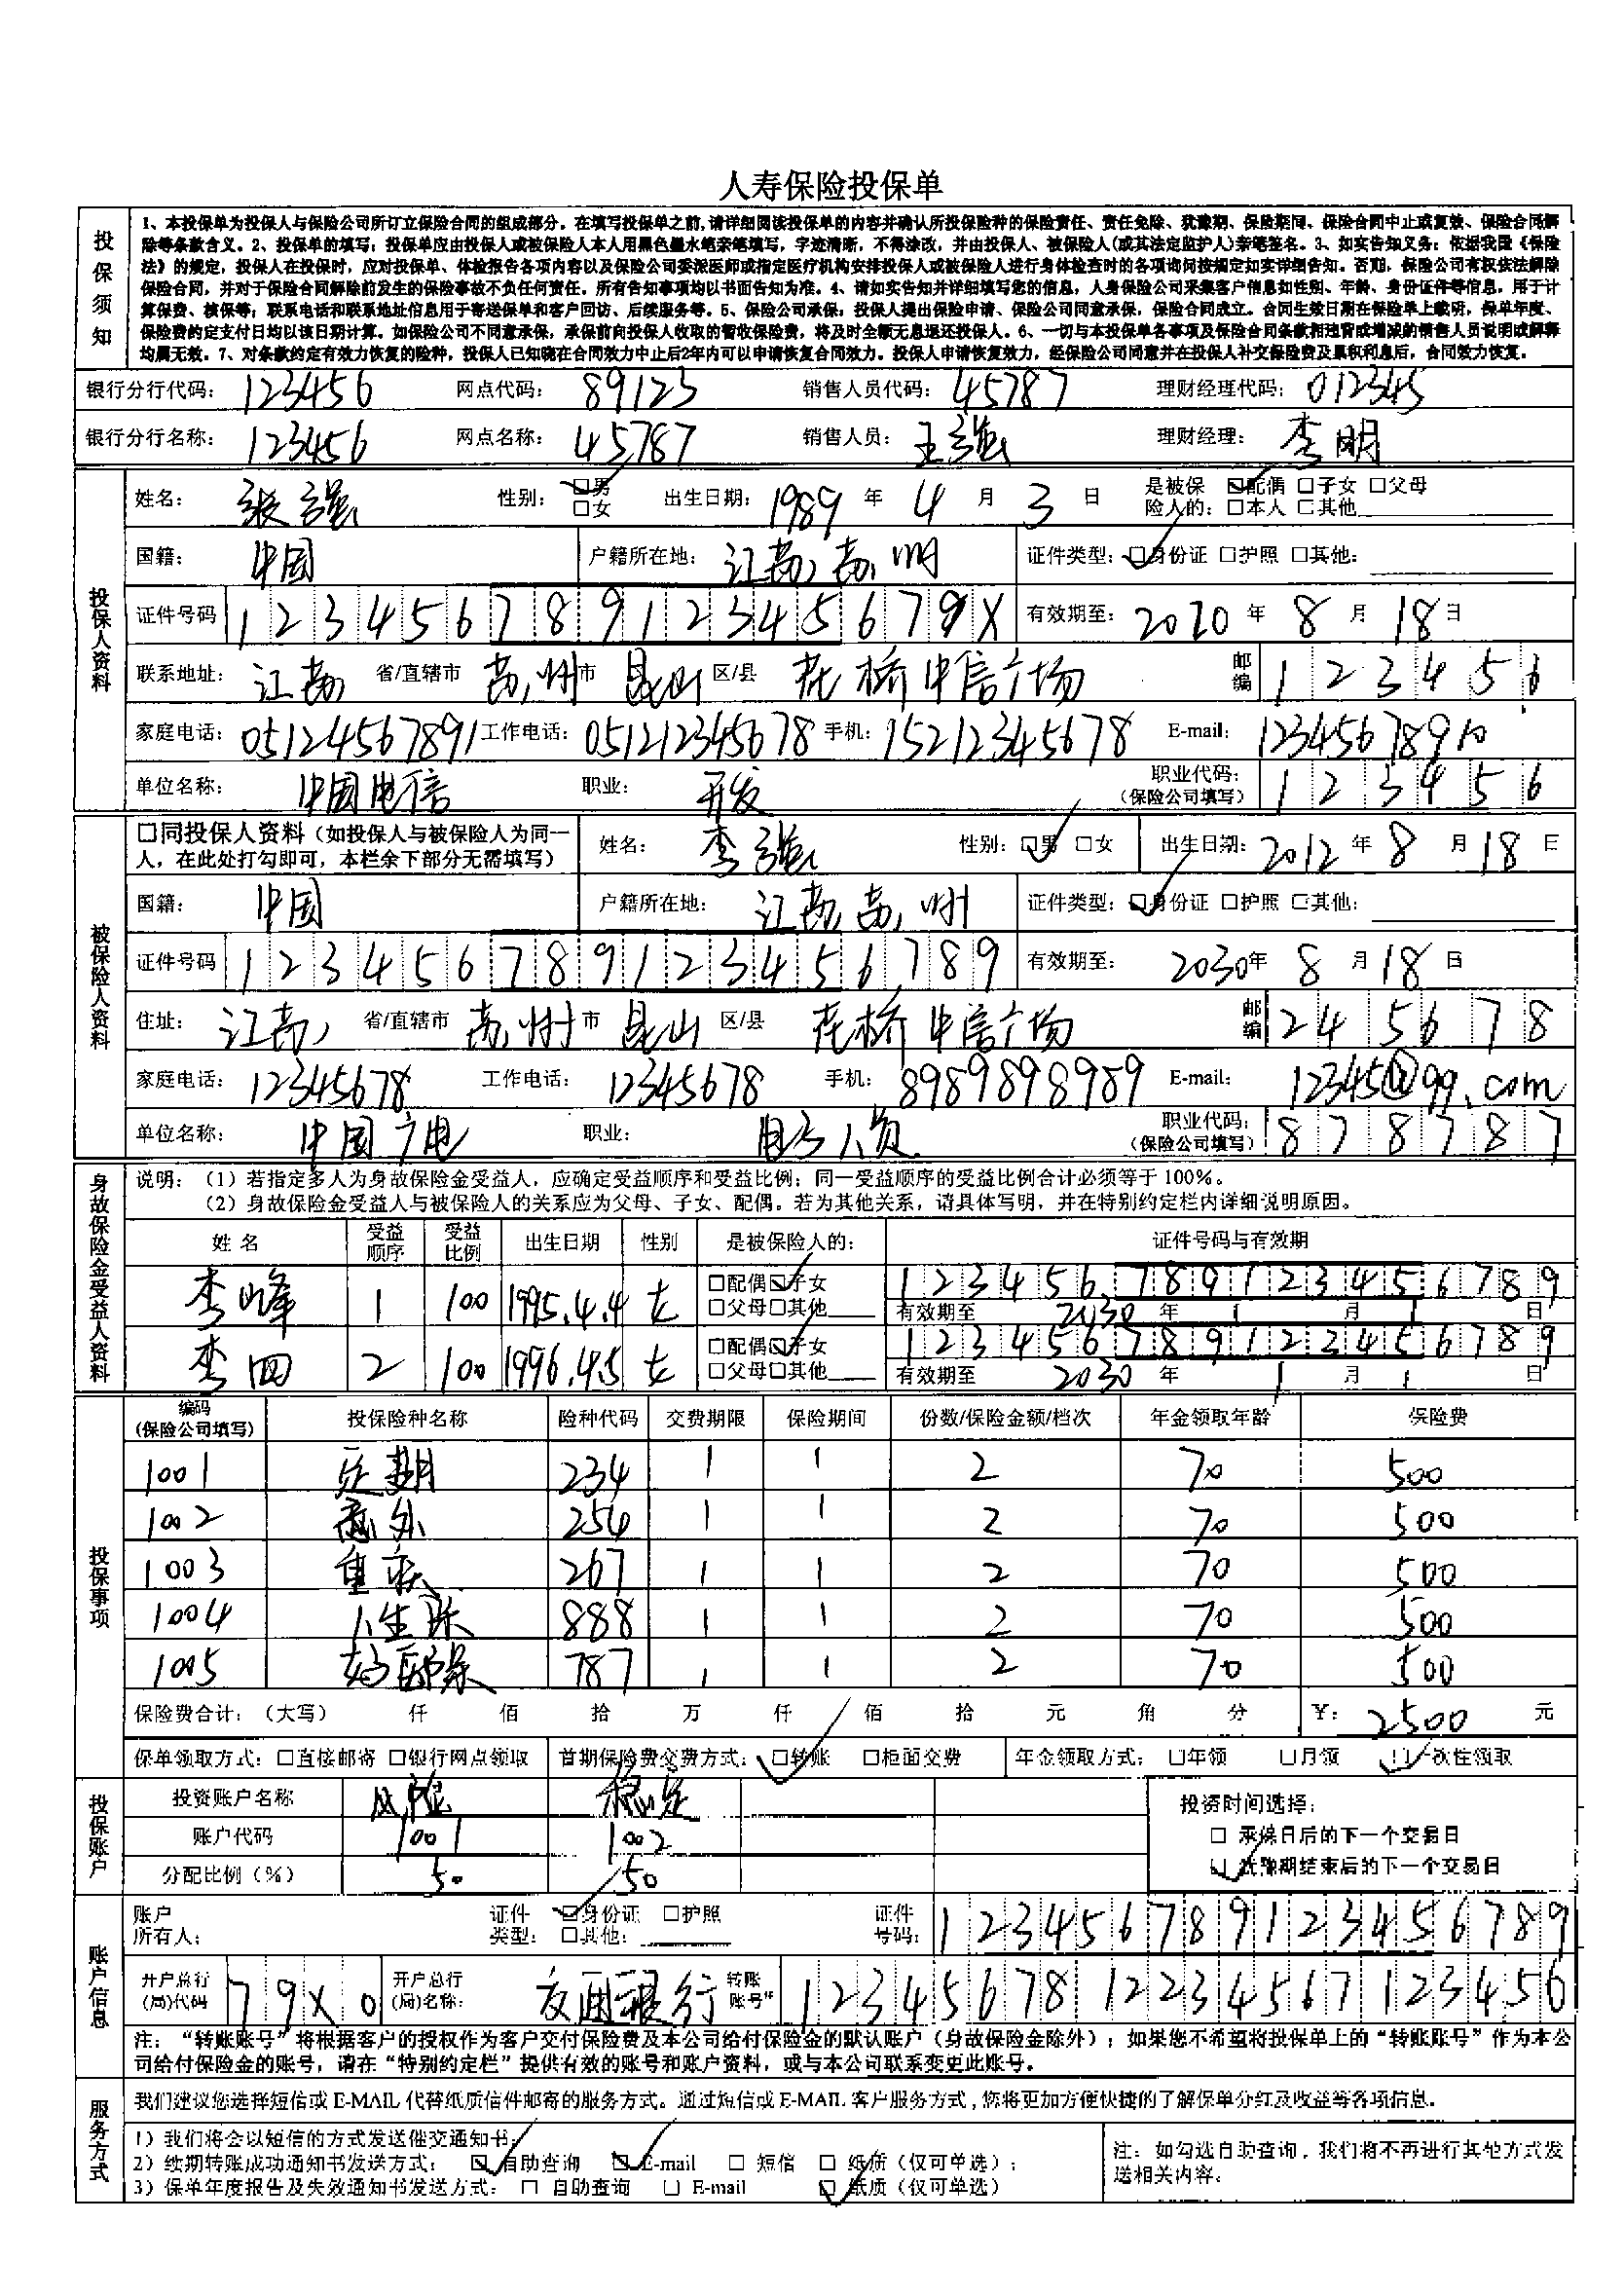 人寿保险投保单
投保须知
1、本投保单为投保人与保险公司所订立保险合同的组成部分。在填写投保单之前,请详细阅读投保单的内容并确认所投保险种的保险责任、责任免除、犹豫期、保险期间、保险合同中止或复效、保险合同解
除等条款含义。2、投保单的填写：投保单应由投保人或被保险人本人用黑色墨水笔亲笔填写，字迹清晰，不得涂改，并由投保人、被保险人(或其法定监护人)亲笔签名。3、如实告知义务：依据我国《保险
法》的规定，投保人在投保时，应对投保单、体检报告各项内容以及保险公司委派医师或指定医疗机构安排投保人或被保险人进行身体检查时的各项询问按规定如实详细告知。否则，保险公司有权依法解除
保险合同，并对于保险合同解除前发生的保险事故不负任何责任。所有告知事项均以书面告知为准。4、请如实告知并详细填写您的信息，人身保险公司采集客户信息如性别、年龄、身份证件等信息，用于计
算保费、核保等；联系电话和联系地址信息用于寄送保单和客户回访、后续服务等。5、保险公司承保：投保人提出保险申请、保险公司同意承保，保险合同成立。合同生效日期在保险单上载明，保单年度、
保险费约定支付日均以该日期计算。如保险公司不同意承保，承保前向投保人收取的暂收保险费，将及时全额无息退还投保人。6、一切与本投保单各事项及保险合同条款相违背或增减的销售人员说明或解释
均属无效。7、对条款约定有效力恢复的险种，投保人已知晓在合同效力中止后2年内可以申请恢复合同效力。投保人申请恢复效力，经保险公司同意并在投保人补交保险费及累积利息后，合同效力恢复。
银行分行代码：123456 网点代码：89123 销售人员代码：45787 理财经理代码：012345
银行分行名称：123456 网点名称：45787 销售人员：王强 理财经理：李明
投保人资料
姓名：张强 性别：☑男 □女 出生日期：1989 年 4 月 3 日 是被保险人的：☑配偶 □子女 □父母 □本人 □其他
国籍：中国 户籍所在地：江苏苏州 证件类型：☑身份证 □护照 □其他：
证件号码 12345678912345679X 有效期至：2020 年 8 月 18 日
联系地址：江苏 省/直辖市 苏州 市 昆山 区/县 花桥中信广场 邮编 123456
家庭电话：05124567891 工作电话：051212345678 手机：15212345678 E-mail：12345678910
单位名称：中国电信 职业：开发 职业代码：（保险公司填写） 123456
被保险人资料
□同投保人资料（如投保人与被保险人为同一人，在此处打勾即可，本栏余下部分无需填写） 姓名：李强 性别：☑男 □女 出生日期：2012 年 8 月 18 日
国籍：中国 户籍所在地：江苏苏州 证件类型：☑身份证 □护照 □其他：
证件号码 123456789123456789 有效期至：2030 年 8 月 18 日
住址：江苏 省/直辖市 苏州 市 昆山 区/县 花桥中信广场 邮编 245678
家庭电话：12345678 工作电话：12345678 手机：8989898989 E-mail：12345@qq.com
单位名称：中国广电 职业：电子人员 职业代码：（保险公司填写） 878787
身故保险金受益人资料
说明：（1）若指定多人为身故保险金受益人，应确定受益顺序和受益比例；同一受益顺序的受益比例合计必须等于 100%。
（2）身故保险金受益人与被保险人的关系应为父母、子女、配偶。若为其他关系，请具体写明，并在特别约定栏内详细说明原因。
姓 名 受益顺序 受益比例 出生日期 性别 是被保险人的： 证件号码与有效期
李峰 1 100 1995.4.4 女 □配偶☑子女 □父母□其他 123456789123456789 有效期至 2030 年 1 月 1 日
李四 2 100 1996.4.5 女 □配偶☑子女 □父母□其他 123456789123456789 有效期至 2030 年 1 月 1 日
投保事项
编码（保险公司填写） 投保险种名称 险种代码 交费期限 保险期间 份数/保险金额/档次 年金领取年龄 保险费
1001 定期 234 1 1 2 70 500
1002 意外 254 1 1 2 70 500
1003 重疾 267 1 1 2 70 500
1004 人生保 888 1 1 2 70 500
1005 好医保 787 1 1 2 70 500
保险费合计：（大写） 仟 佰 拾 万 仟 佰 拾 元 角 分 ￥：2500 元
保单领取方式：□直接邮寄 □银行网点领取 首期保险费交费方式：☑转账 □柜面交费 年金领取方式：□年领 □月领 ☑一次性领取
投保账户
投资账户名称 风险 稳定
账户代码 1001 1002
分配比例（%） 50 50
投资时间选择：
□ 承保日后的下一个交易日
☑ 犹豫期结束后的下一个交易日
账户信息
账户所有人： 证件类型：☑身份证 □护照 □其他： 证件号码：123456789123456789
开户总行(局)代码 79X0 开户总行(局)名称：交通银行 转账账号 12345678 12234567 123456
注：“转账账号”将根据客户的授权作为客户交付保险费及本公司给付保险金的默认账户（身故保险金除外）；如果您不希望将投保单上的“转账账号”作为本公
司给付保险金的账号，请在“特别约定栏”提供有效的账号和账户资料，或与本公司联系变更此账号。
服务方式
我们建议您选择短信或 E-MAIL 代替纸质信件邮寄的服务方式。通过短信或 E-MAIL 客户服务方式，您将更加方便快捷的了解保单分红及收益等各项信息。
1）我们将会以短信的方式发送催交通知书；
2）续期转账成功通知书发送方式：☑ 自助查询 ☑ E-mail □ 短信 □ 纸质（仅可单选）；
3）保单年度报告及失效通知书发送方式：□ 自助查询 □ E-mail ☑ 纸质（仅可单选）
注：如勾选自助查询，我们将不再进行其他方式发
送相关内容。